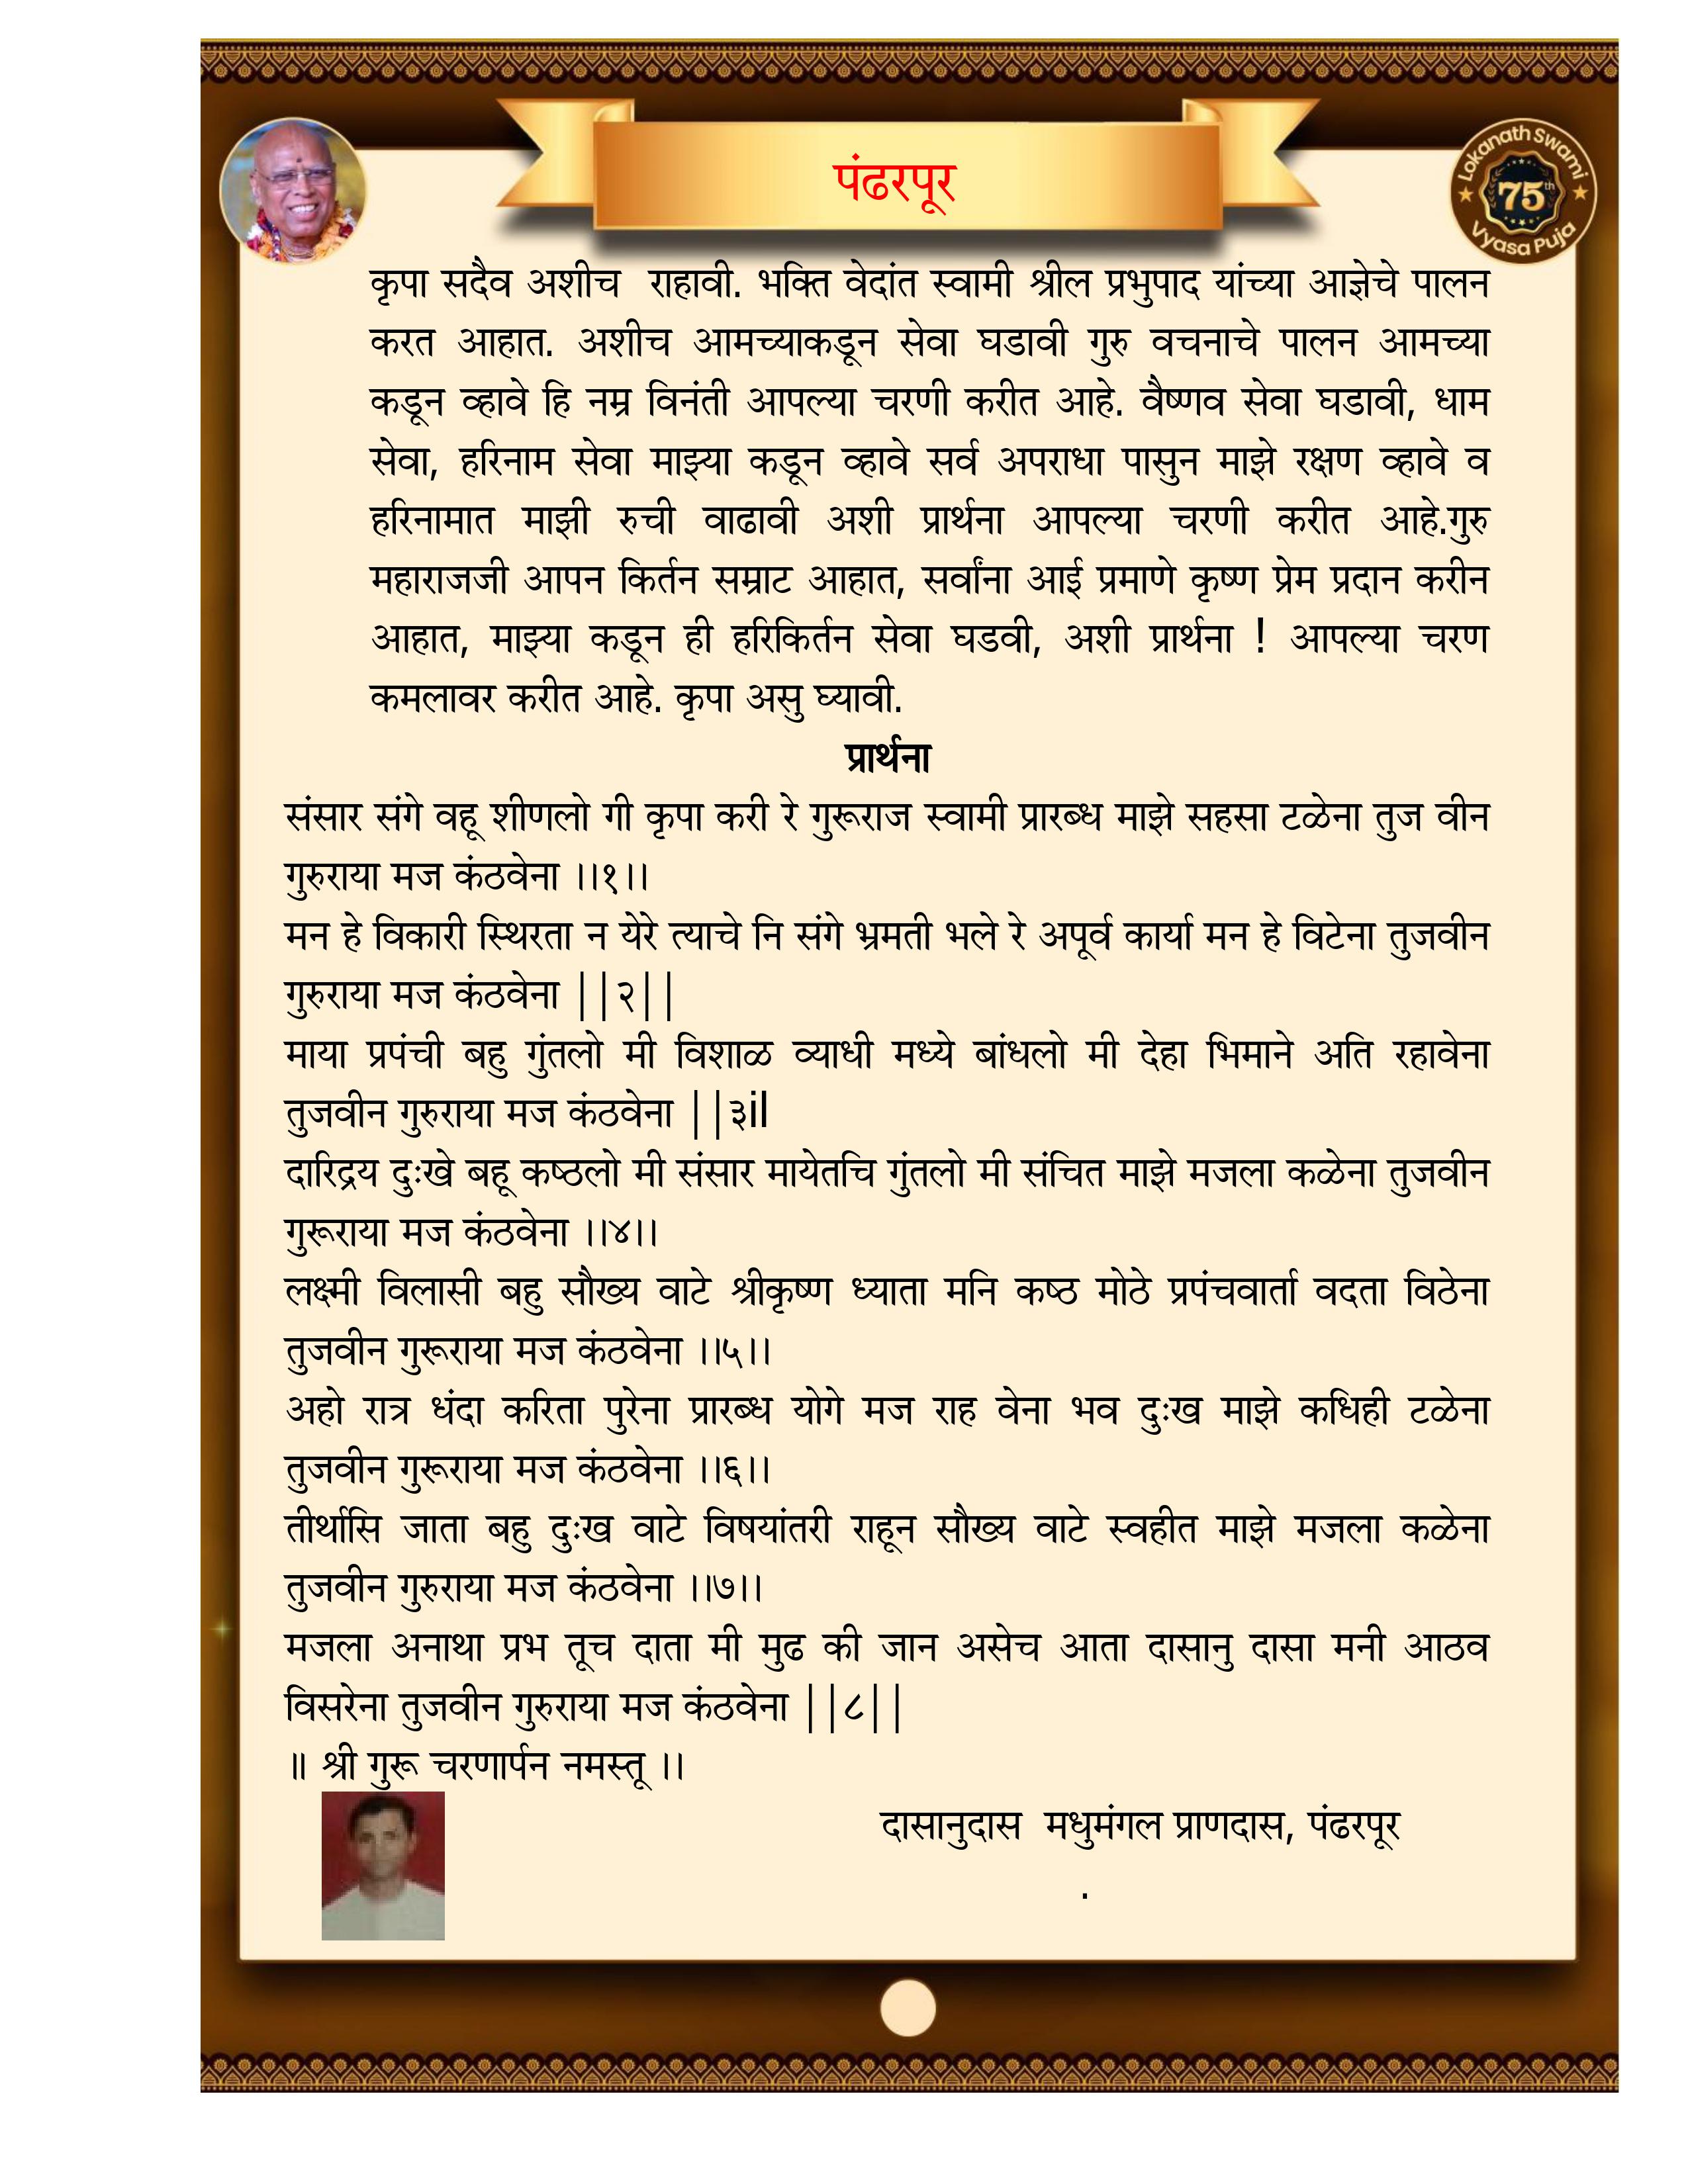 पंढरपूर
Lokanath Swami
75th
Vyasa Puja
कृपा सदैव अशीच राहावी. भक्ति वेदांत स्वामी श्रील प्रभुपाद यांच्या आज्ञेचे पालन
करत आहात. अशीच आमच्याकडून सेवा घडावी गुरु वचनाचे पालन आमच्या
कडून व्हावे हि नम्र विनंती आपल्या चरणी करीत आहे. वैष्णव सेवा घडावी, धाम
सेवा, हरिनाम सेवा माझ्या कडून व्हावे सर्व अपराधा पासुन माझे रक्षण व्हावे व
हरिनामात माझी रुची वाढावी अशी प्रार्थना आपल्या चरणी करीत आहे.गुरु
महाराजजी आपन किर्तन सम्राट आहात, सर्वांना आई प्रमाणे कृष्ण प्रेम प्रदान करीन
आहात, माझ्या कडून ही हरिकिर्तन सेवा घडवी, अशी प्रार्थना ! आपल्या चरण
कमलावर करीत आहे. कृपा असु घ्यावी.
प्रार्थना
संसार संगे वहू शीणलो गी कृपा करी रे गुरूराज स्वामी प्रारब्ध माझे सहसा टळेना तुज वीन
गुरुराया मज कंठवेना ।।१।।
मन हे विकारी स्थिरता न येरे त्याचे नि संगे भ्रमती भले रे अपूर्व कार्या मन हे विटेना तुजवीन
गुरुराया मज कंठवेना ||२||
माया प्रपंची बहु गुंतलो मी विशाळ व्याधी मध्ये बांधलो मी देहा भिमाने अति रहावेना
तुजवीन गुरुराया मज कंठवेना ||३il
दारिद्रय दुःखे बहू कष्ठलो मी संसार मायेतचि गुंतलो मी संचित माझे मजला कळेना तुजवीन
गुरूराया मज कंठवेना ।।४।।
लक्ष्मी विलासी बहु सौख्य वाटे श्रीकृष्ण ध्याता मनि कष्ठ मोठे प्रपंचवार्ता वदता विठेना
तुजवीन गुरूराया मज कंठवेना ।।५।।
अहो रात्र धंदा करिता पुरेना प्रारब्ध योगे मज राह वेना भव दुःख माझे कधिही टळेना
तुजवीन गुरूराया मज कंठवेना ।।६।।
तीर्थासि जाता बहु दुःख वाटे विषयांतरी राहून सौख्य वाटे स्वहीत माझे मजला कळेना
तुजवीन गुरुराया मज कंठवेना ।।७।।
मजला अनाथा प्रभ तूच दाता मी मुढ की जान असेच आता दासानु दासा मनी आठव
विसरेना तुजवीन गुरुराया मज कंठवेना ||८||
॥ श्री गुरू चरणार्पन नमस्तू ।।
दासानुदास मधुमंगल प्राणदास, पंढरपूर
.